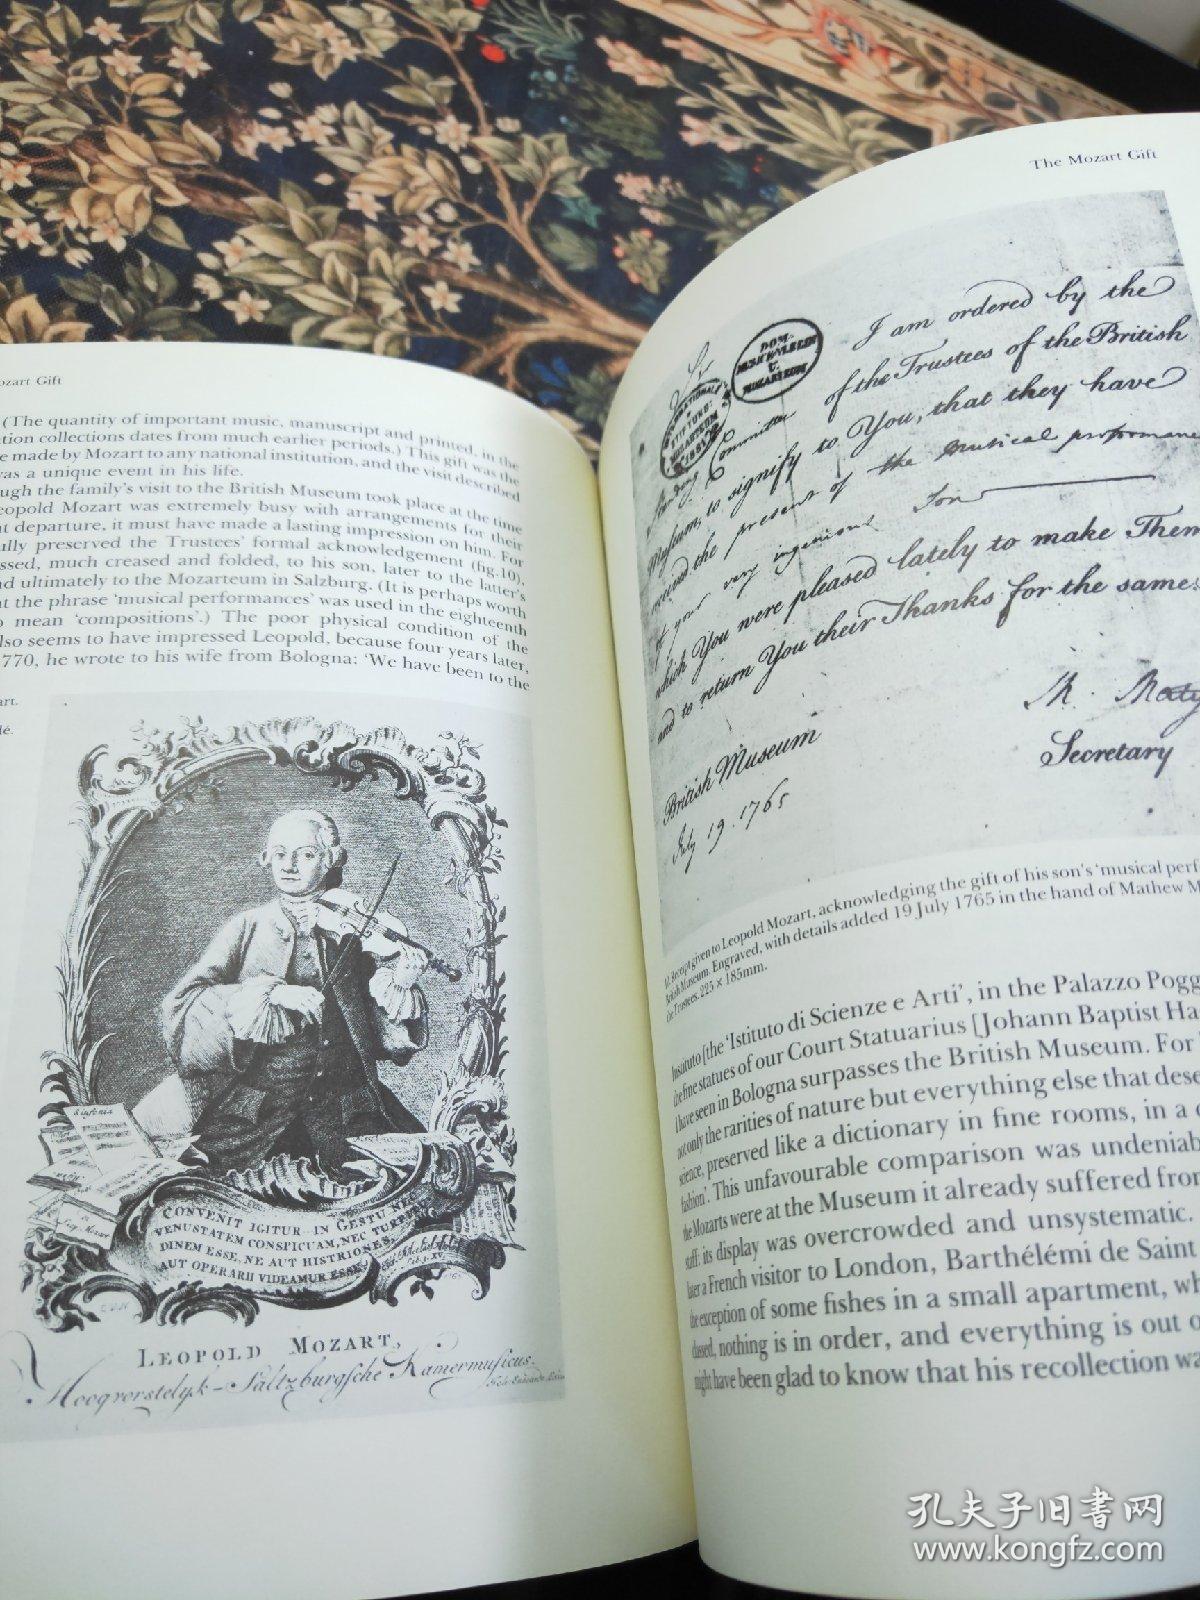 ozart Gift
(The quantity of important music, manuscript and printed, in the
tion collections dates from much earlier periods.) This gift was the
e made by Mozart to any national institution, and the visit described
was a unique event in his life.
ugh the family's visit to the British Museum took place at the time
eopold Mozart was extremely busy with arrangements for their
t departure, it must have made a lasting impression on him. For
ully preserved the Trustees' formal acknowledgement (fig.10),
ssed, much creased and folded, to his son, later to the latter's
nd ultimately to the Mozarteum in Salzburg. (It is perhaps worth
at the phrase 'musical performances' was used in the eighteenth
o mean 'compositions'.) The poor physical condition of the
lso seems to have impressed Leopold, because four years later,
770, he wrote to his wife from Bologna: 'We have been to the
art.
lé.
Sinfonia
CONVENIT IGITUR IN GESTU NEC
VENUSTATEM CONSPICUAM, NEC TURPITU
DINEM ESSE, NE AUT HISTRIONES,
AUT OPERARII VIDEAMUR ESSE
LEOPOLD MOZART,
Hoogvorstelyk-Saltzburgsche Kamermusicus.
The Mozart Gift
Sir
DOM-
MUSIK-VEREIN
U.
MOZARTEUM
I am ordered by the
Standing Committee of the Trustees of the British
Museum, to signify to You, that they have
received the present of the musical performances
of your very ingenious Son
which You were pleased lately to make Them
and to return You their Thanks for the same.
M. Maty
Secretary
British Museum
July 19. 1765
10. Receipt given to Leopold Mozart, acknowledging the gift of his son's 'musical perf
British Museum. Engraved, with details added 19 July 1765 in the hand of Mathew M
the Trustees. 225 × 185mm.
Instituto [the 'Istituto di Scienze e Arti', in the Palazzo Pogg
the fine statues of our Court Statuarius [Johann Baptist Ha
I have seen in Bologna surpasses the British Museum. For
not only the rarities of nature but everything else that dese
science, preserved like a dictionary in fine rooms, in a c
fashion'. This unfavourable comparison was undeniab
the Mozarts were at the Museum it already suffered from
staff: its display was overcrowded and unsystematic.
later a French visitor to London, Barthélémi de Saint
the exception of some fishes in a small apartment, wh
classed, nothing is in order, and everything is out o
might have been glad to know that his recollection wa
孔夫子旧书网
www.kongfz.com